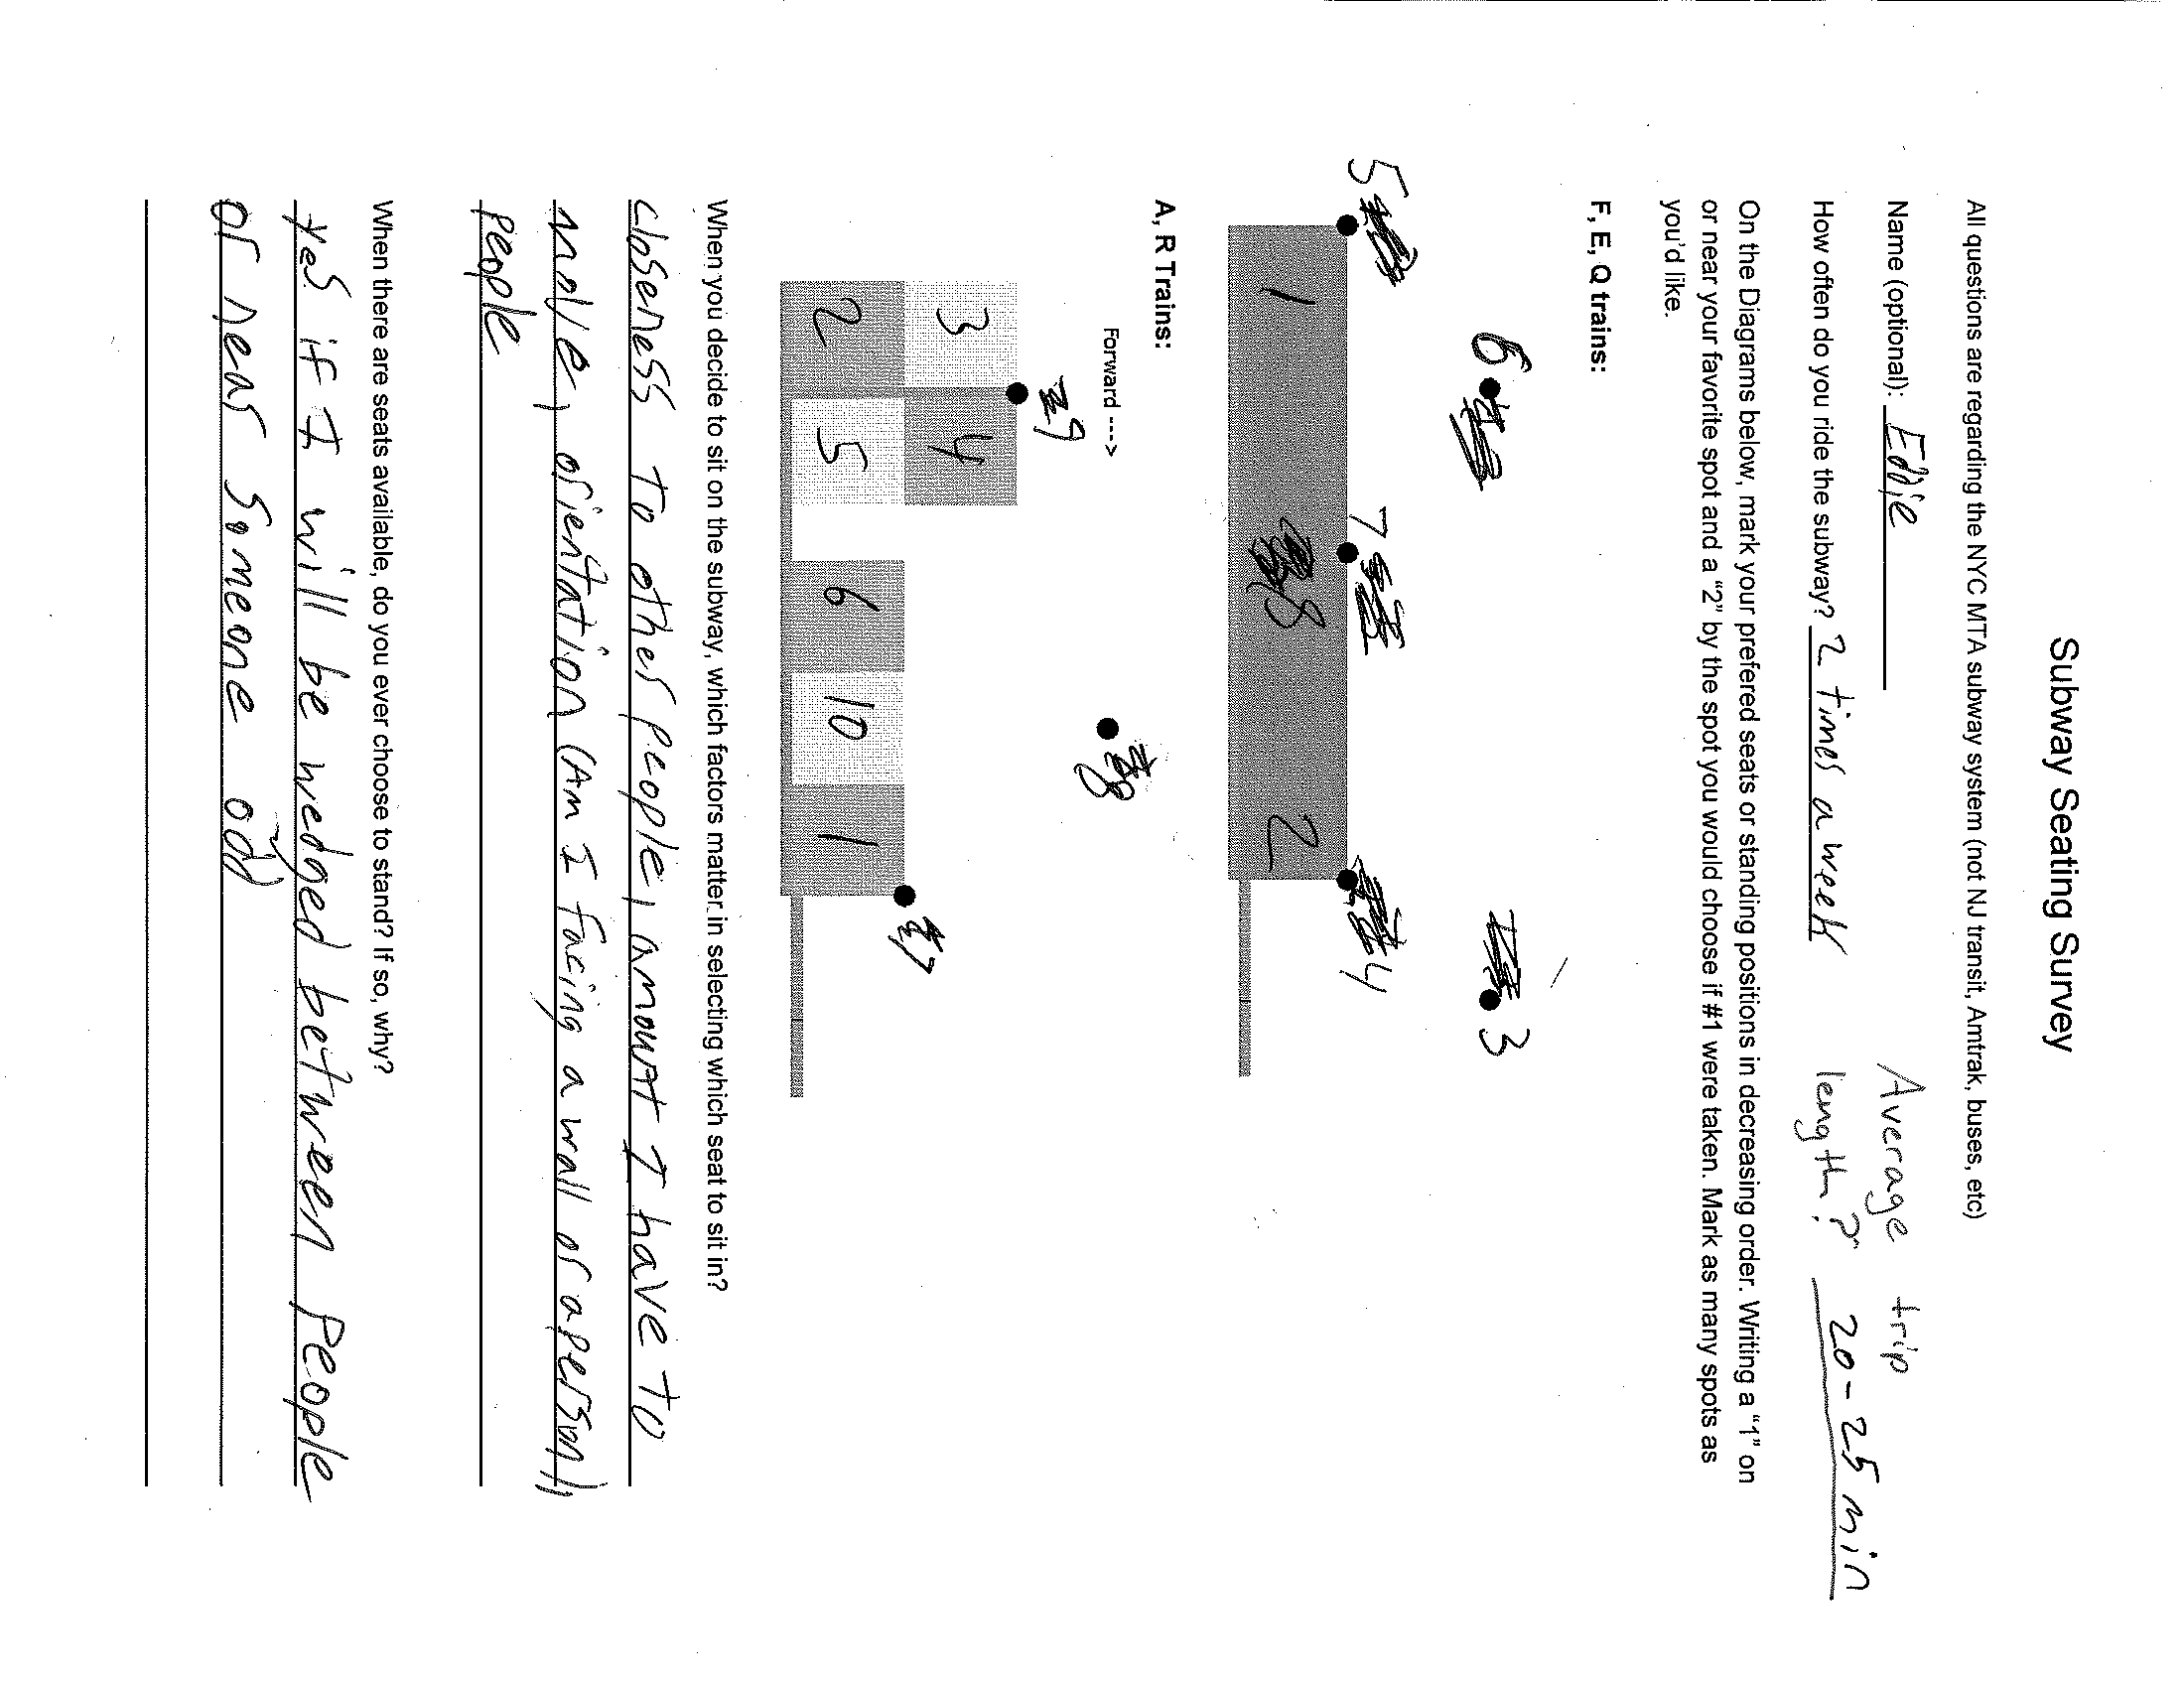 Subway Seating Survey
All questions are regarding the NYC MTA subway system (not NJ transit, Amtrak, buses, etc)
Name (optional): Eddie
Average trip
How often do you ride the subway? 2 times a week
length? 20-25 min
On the Diagrams below, mark your prefered seats or standing positions in decreasing order. Writing a "1" on
or near your favorite spot and a "2" by the spot you would choose if #1 were taken. Mark as many spots as
you'd like.
F, E, Q trains:
6 3
5 7 4
1 8 2
A, R Trains:
Forward --->
9 8
3 4 7
2 5 6 10 1
When you decide to sit on the subway, which factors matter in selecting which seat to sit in?
closeness to other people, amount I have to
move, orientation (Am I facing a wall or a person),
people
When there are seats available, do you ever choose to stand? If so, why?
Yes if I will be wedged between people
or near someone odd